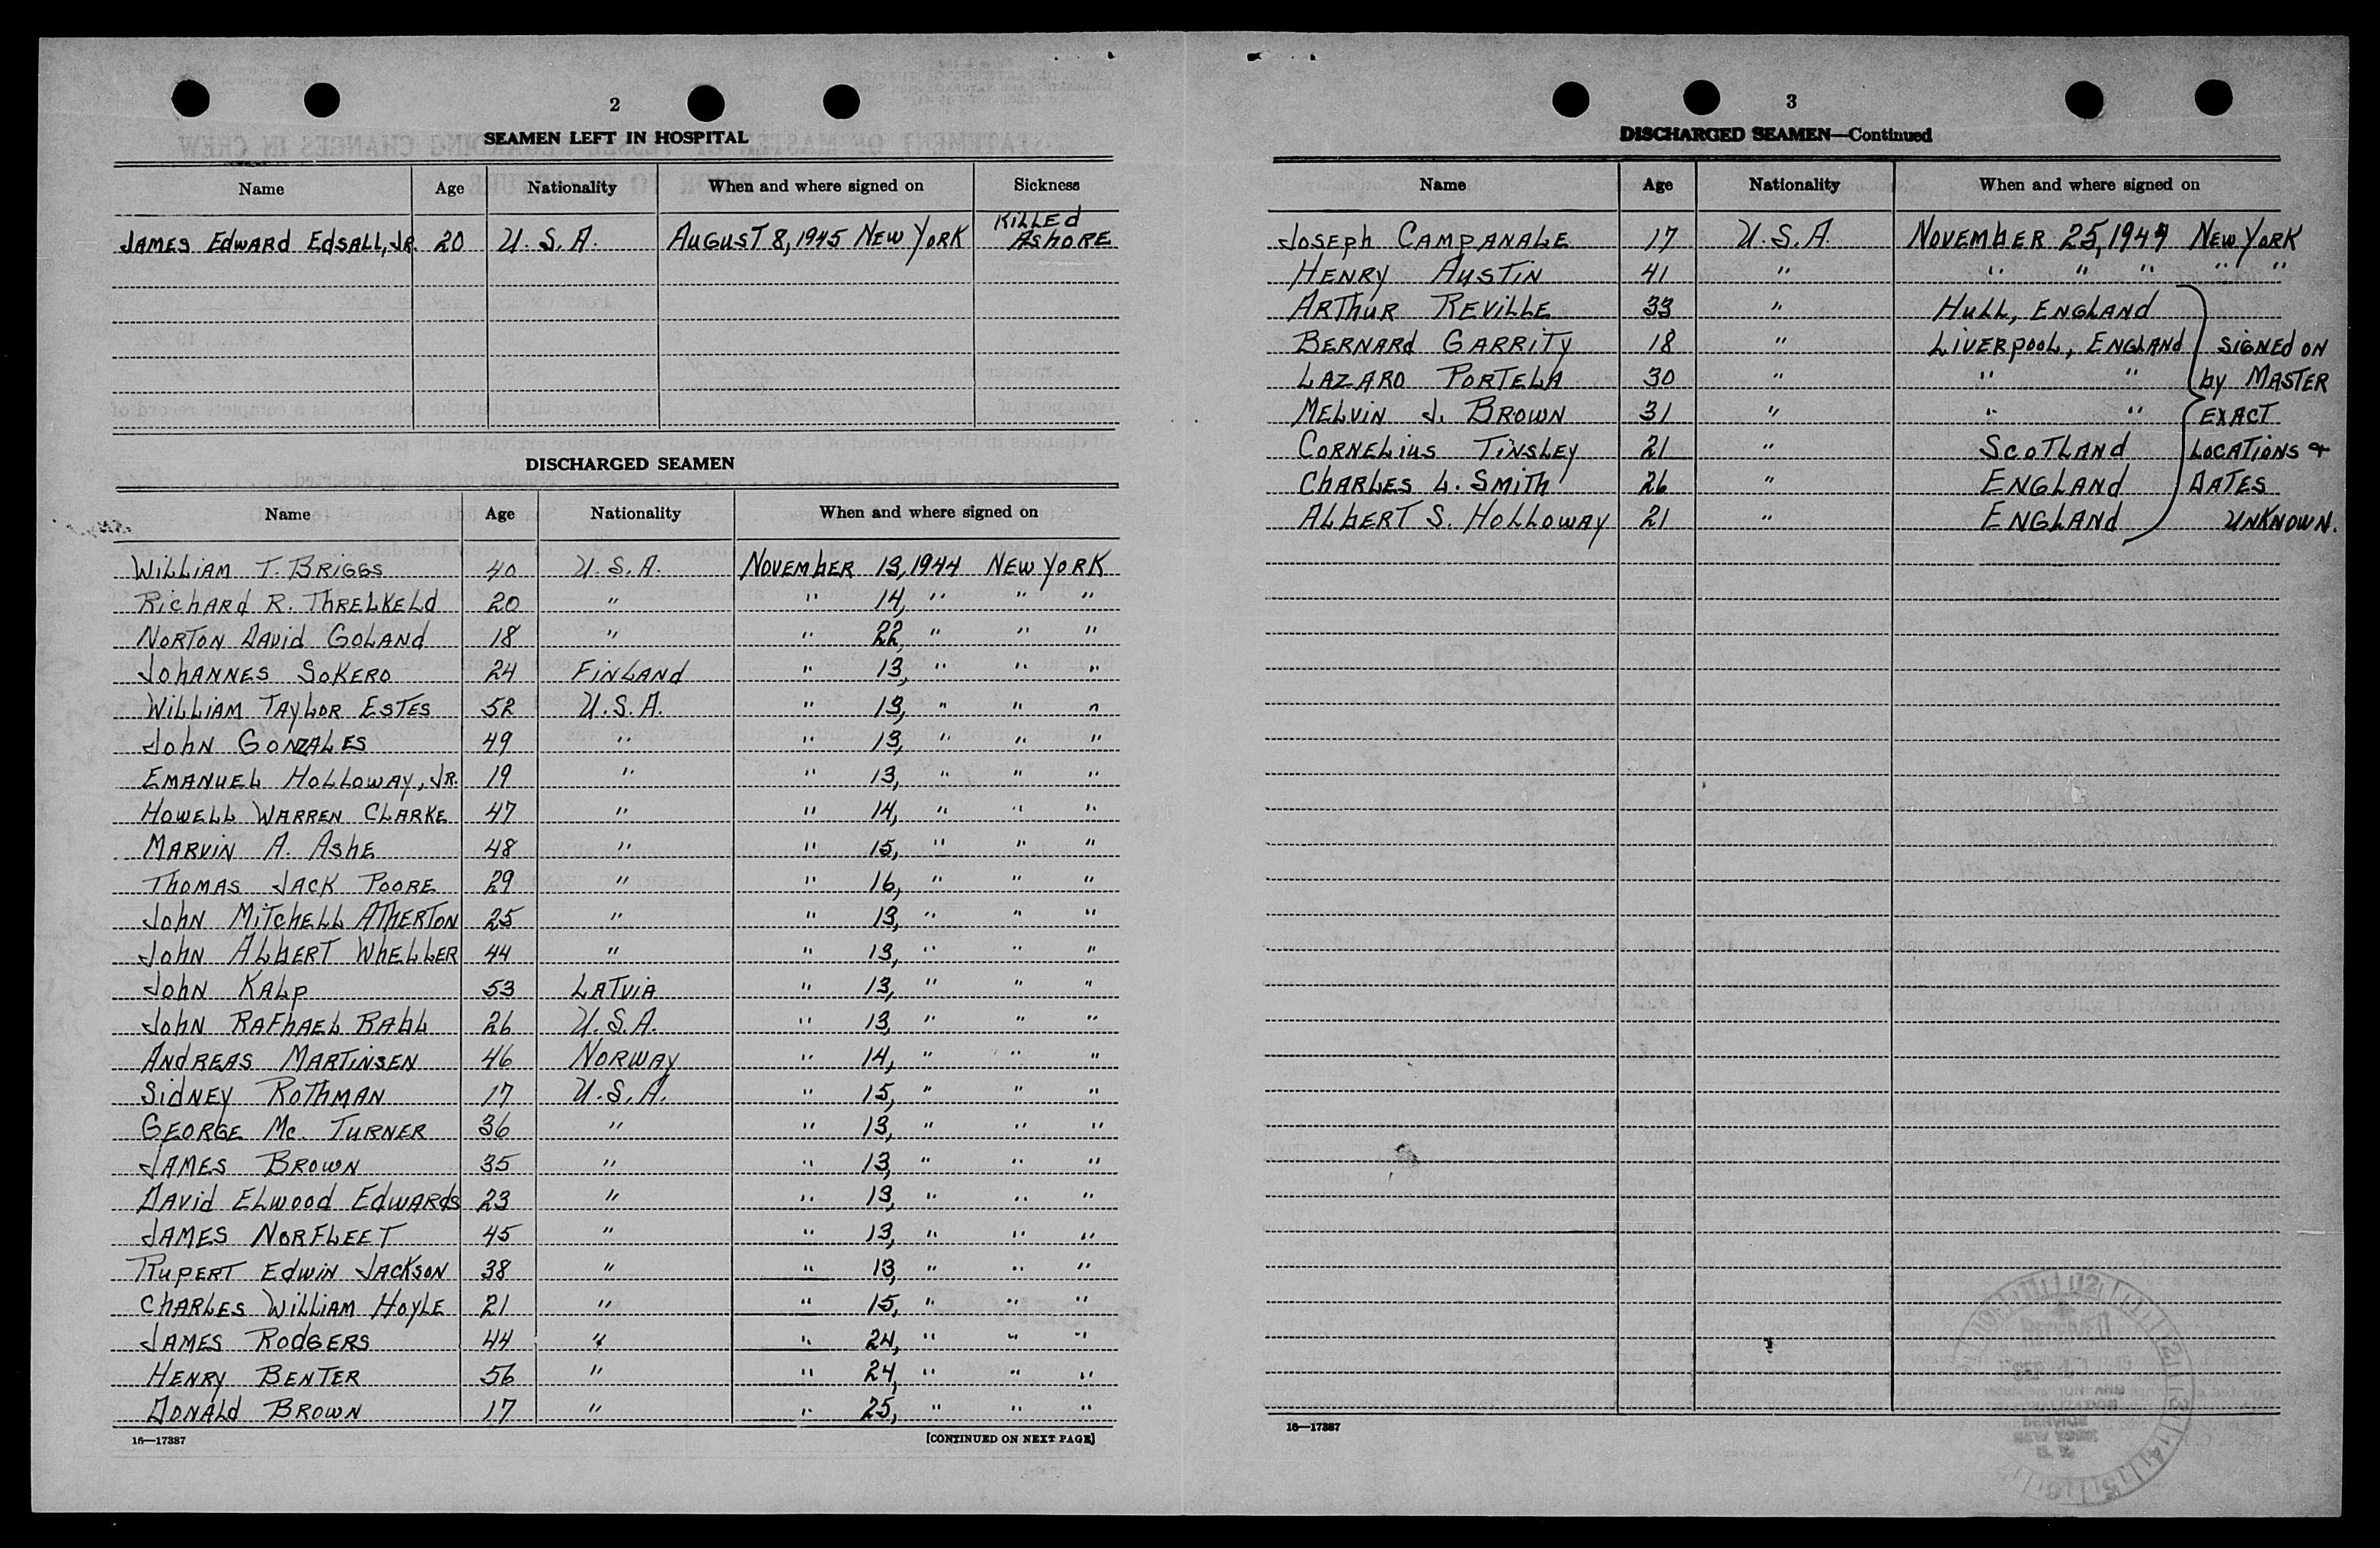 2
SEAMEN LEFT IN HOSPITAL
Name Age Nationality When and where signed on Sickness
JAMES EDWARD EDSALL, JR. 20 U.S.A. AUGUST 8, 1945 NEW YORK KILLED ASHORE
DISCHARGED SEAMEN
Name Age Nationality When and where signed on
WILLIAM T. BRIGGS 40 U.S.A. NOVEMBER 13, 1944 NEW YORK
RICHARD R. THRELKELD 20 " " 14, " " "
NORTON DAVID GOLAND 18 " " 22, " " "
JOHANNES SOKERO 24 FINLAND " 13, " " "
WILLIAM TAYLOR ESTES 52 U.S.A. " 13, " " "
JOHN GONZALES 49 " " 13, " " "
EMANUEL HOLLOWAY, JR. 19 " " 13, " " "
HOWELL WARREN CLARKE 47 " " 14, " " "
MARVIN A. ASHE 48 " " 15, " " "
THOMAS JACK POORE 29 " " 16, " " "
JOHN MITCHELL ATHERTON 25 " " 13, " " "
JOHN ALBERT WHELLER 44 " " 13, " " "
JOHN KALP 53 LATVIA " 13, " " "
JOHN RAFHAEL RAHL 26 U.S.A. " 13, " " "
ANDREAS MARTINSEN 46 NORWAY " 14, " " "
SIDNEY ROTHMAN 17 U.S.A. " 15, " " "
GEORGE MC. TURNER 36 " " 13, " " "
JAMES BROWN 35 " " 13, " " "
DAVID ELWOOD EDWARDS 23 " " 13, " " "
JAMES NORFLEET 45 " " 13, " " "
RUPERT EDWIN JACKSON 38 " " 13, " " "
CHARLES WILLIAM HOYLE 21 " " 15, " " "
JAMES RODGERS 44 " " 24, " " "
HENRY BENTER 56 " " 24, " " "
DONALD BROWN 17 " " 25, " " "
16—17387 [CONTINUED ON NEXT PAGE]
3
DISCHARGED SEAMEN—Continued
Name Age Nationality When and where signed on
JOSEPH CAMPANALE 17 U.S.A. NOVEMBER 25, 1944 NEW YORK
HENRY AUSTIN 41 " " " " " "
ARTHUR REVILLE 33 " HULL, ENGLAND
BERNARD GARRITY 18 " LIVERPOOL, ENGLAND SIGNED ON
LAZARO PORTELA 30 " " " by MASTER
MELVIN J. BROWN 31 " " " EXACT
CORNELIUS TINSLEY 21 " SCOTLAND LOCATIONS &
CHARLES L. SMITH 26 " ENGLAND DATES
ALBERT S. HOLLOWAY 21 " ENGLAND UNKNOWN.
16—17387